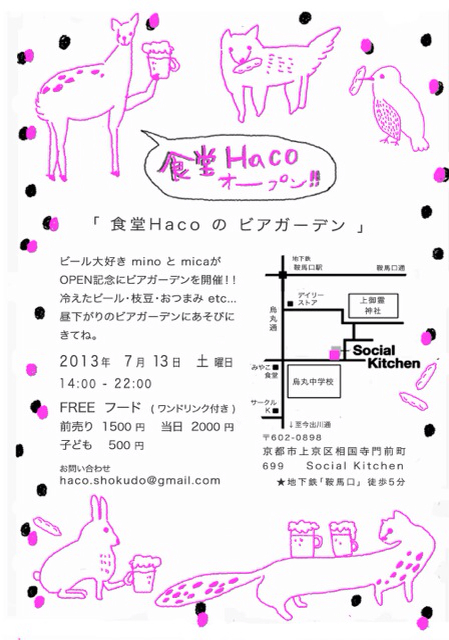 食堂Haco
オープン!!
「 食堂Haco の ビアガーデン 」
ビール大好き mino と micaが
OPEN記念にビアガーデンを開催!!
冷えたビール・枝豆・おつまみ etc...
昼下がりのビアガーデンにあそびに
きてね。
2013年 7月13日 土曜日
14:00 - 22:00
FREE フード (ワンドリンク付き)
前売り 1500円 当日 2000円
子ども 500円
お問い合わせ
haco.shokudo@gmail.com
地下鉄
鞍馬口駅
鞍馬口通
烏丸通
デイリー
ストア
上御霊
神社
Social
Kitchen
みやこ
食堂
烏丸中学校
サークル
K
↓至今出川通
〒602-0898
京都市上京区相国寺門前町
699 Social Kitchen
★地下鉄「鞍馬口」徒歩5分